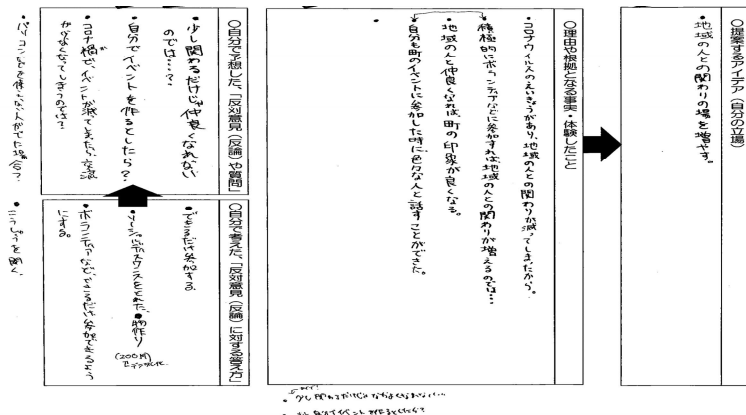 ○提案するアイデア（自分の立場）
・地域の人との関わりの場を増やす。
○理由や根拠となる事実・体験したこと
・コロナウイルスのえいきょうがあり、地域の人との関わりが減ってしまったから。
・積極的にボランティアなどに参加すれば地域の人との関わりが増えるのでは…
・地域の人と仲良くなれば町の印象が良くなる。
・自分も町のイベントに参加した時に色々な人と話すことができた。
○自分で予想した、「反対意見（反論）や質問」
・少し関わるだけじゃ仲良くなれないのでは…？
・自分でイベントを作るとしたら？
・コロナ禍でイベントが減てしまたら、交流が少なくなってしまうのでは？
○自分で考えた、「反対意見（反論）に対する答え方」
・できるだけ参加する
・ソーシャルディスタンスをとれた、●物作り
(200円)
・ボランティアなど、できるだけ参加できるようにする。
・を聞く
・少し関わるだけじゃなかよくなれない…
自分でイベントを作るとしたら？